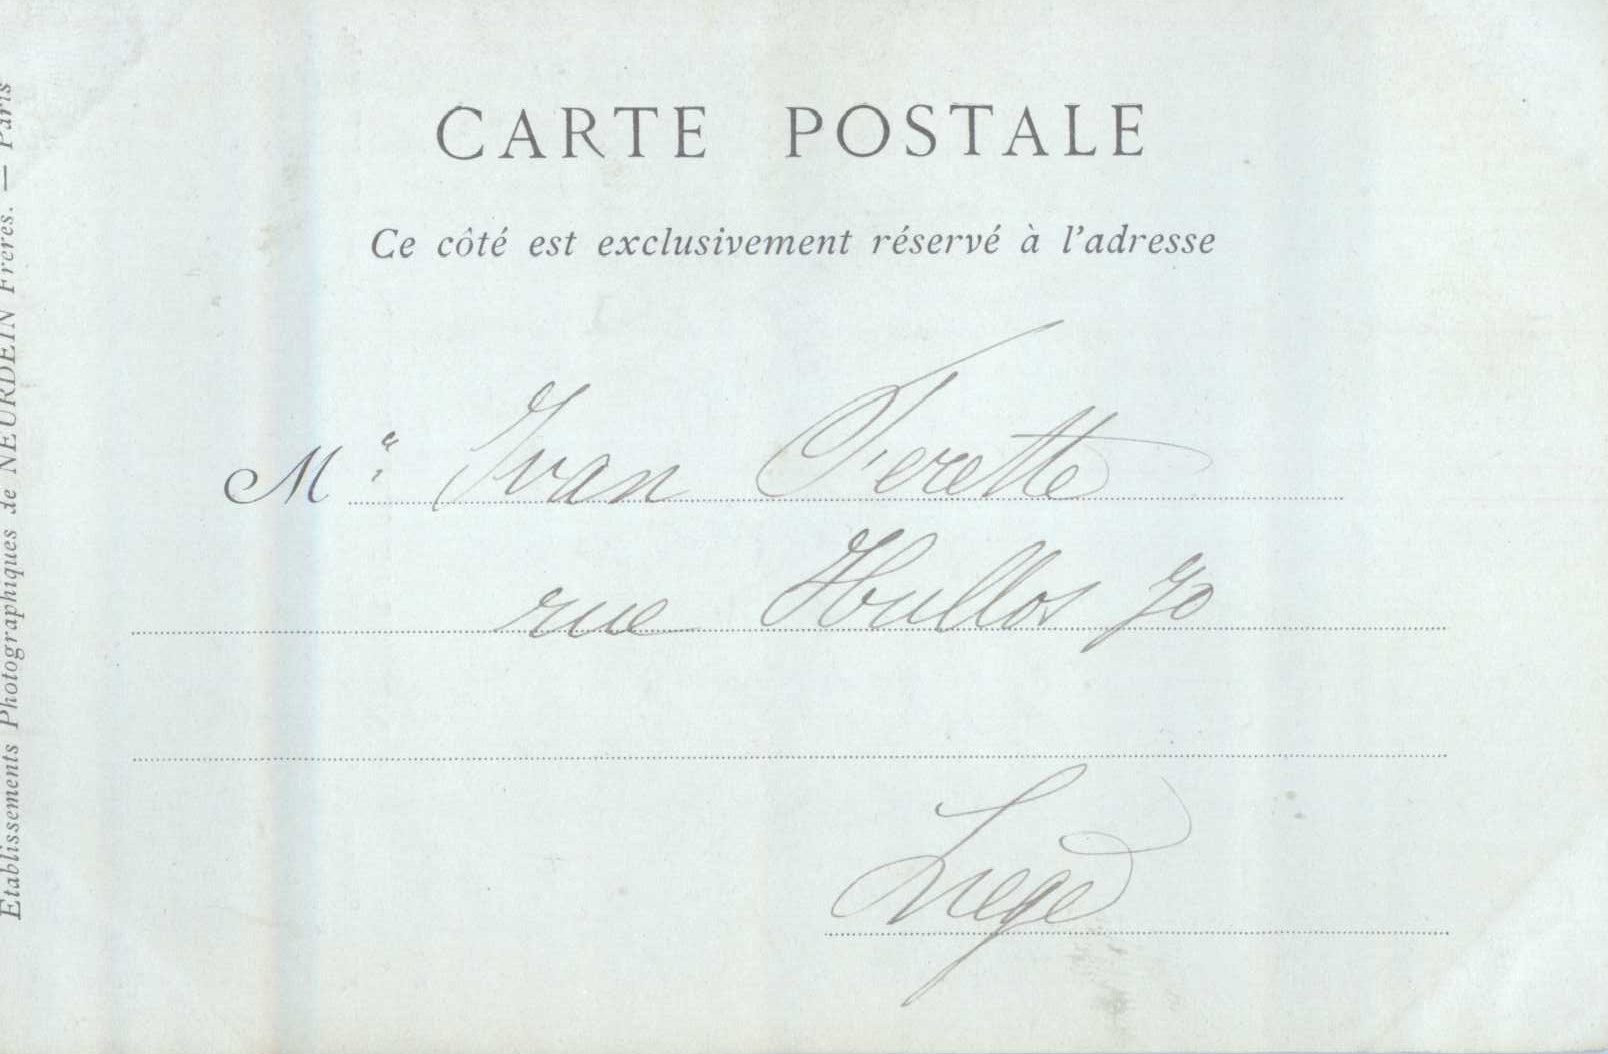 CARTE POSTALE
Ce côté est exclusivement réservé à l'adresse
M. Ivan Ferette
rue Hullos 70
Liege
Etablissements Photographiques de NEURDEIN Frères. — Paris